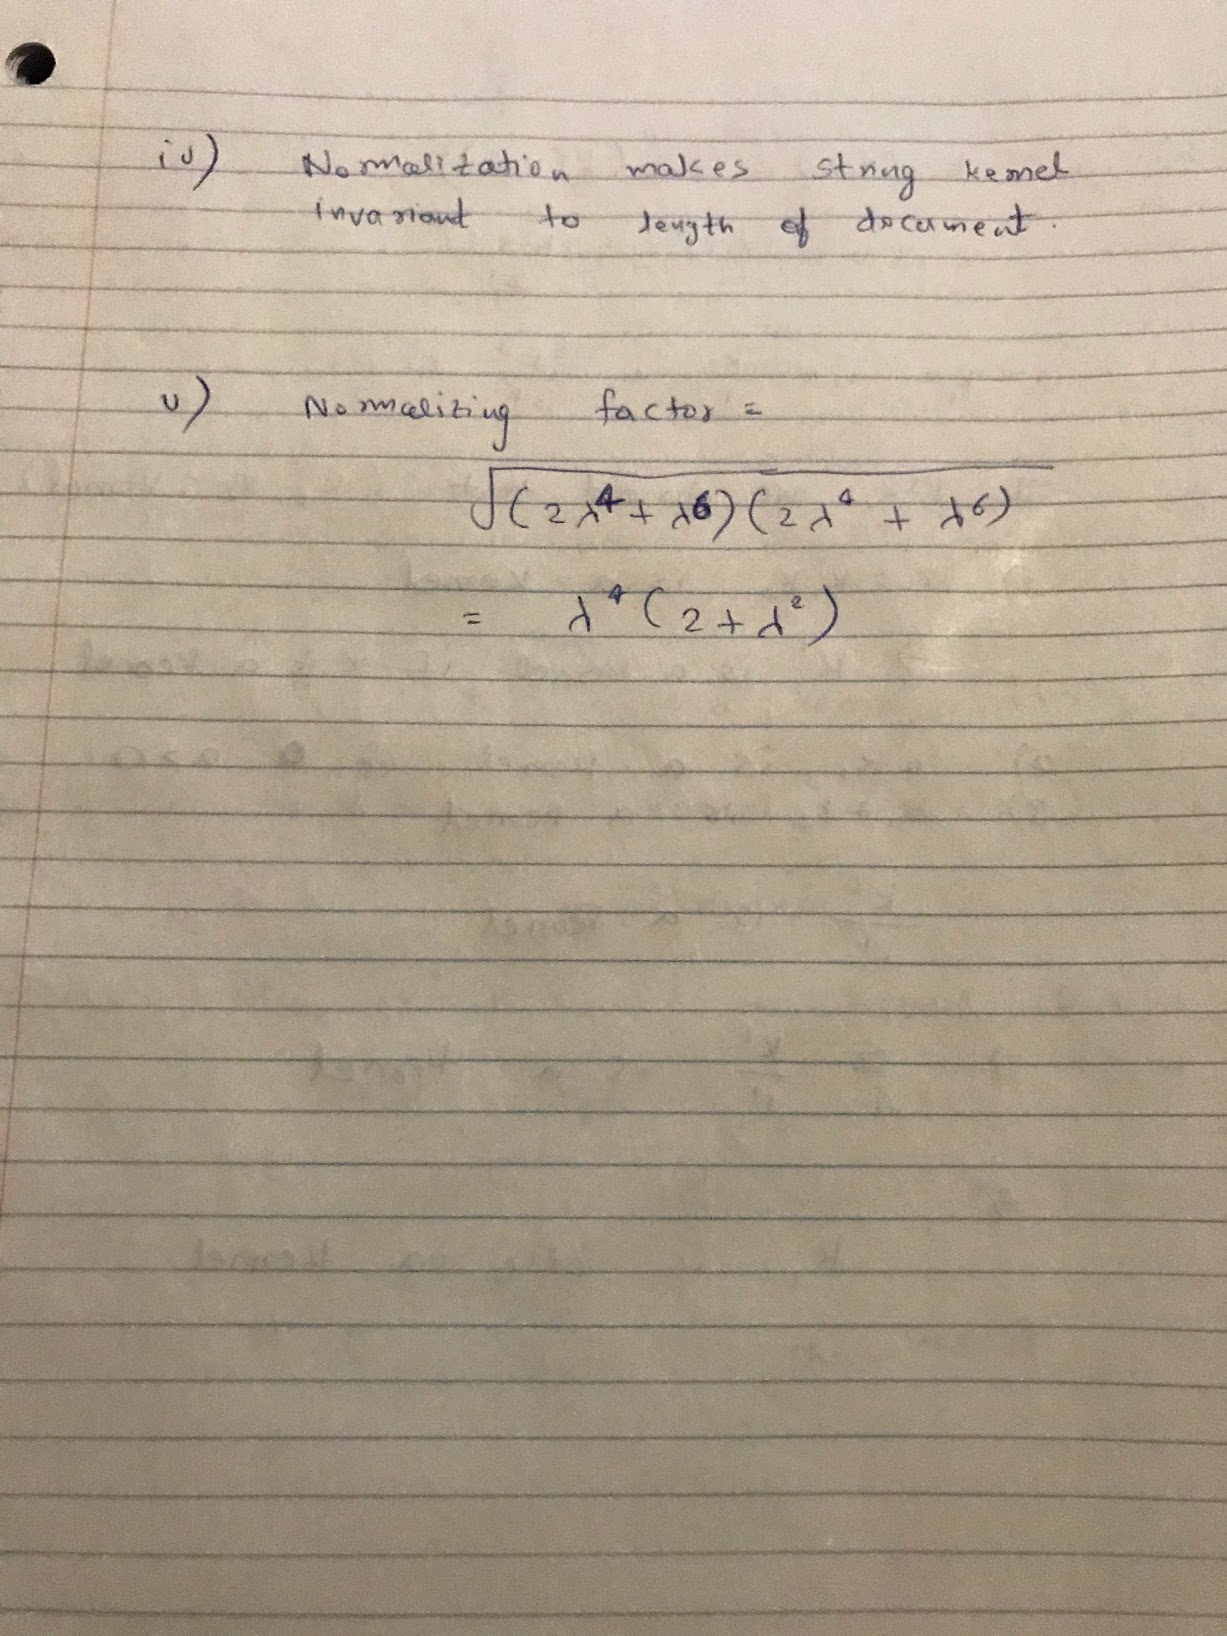 iv) Normalization makes string kernel
invariant to length of document.
v) Normalizing factor =
√((2λ⁴ + λ⁶)(2λ⁴ + λ⁶))
= λ⁴(2 + λ²)